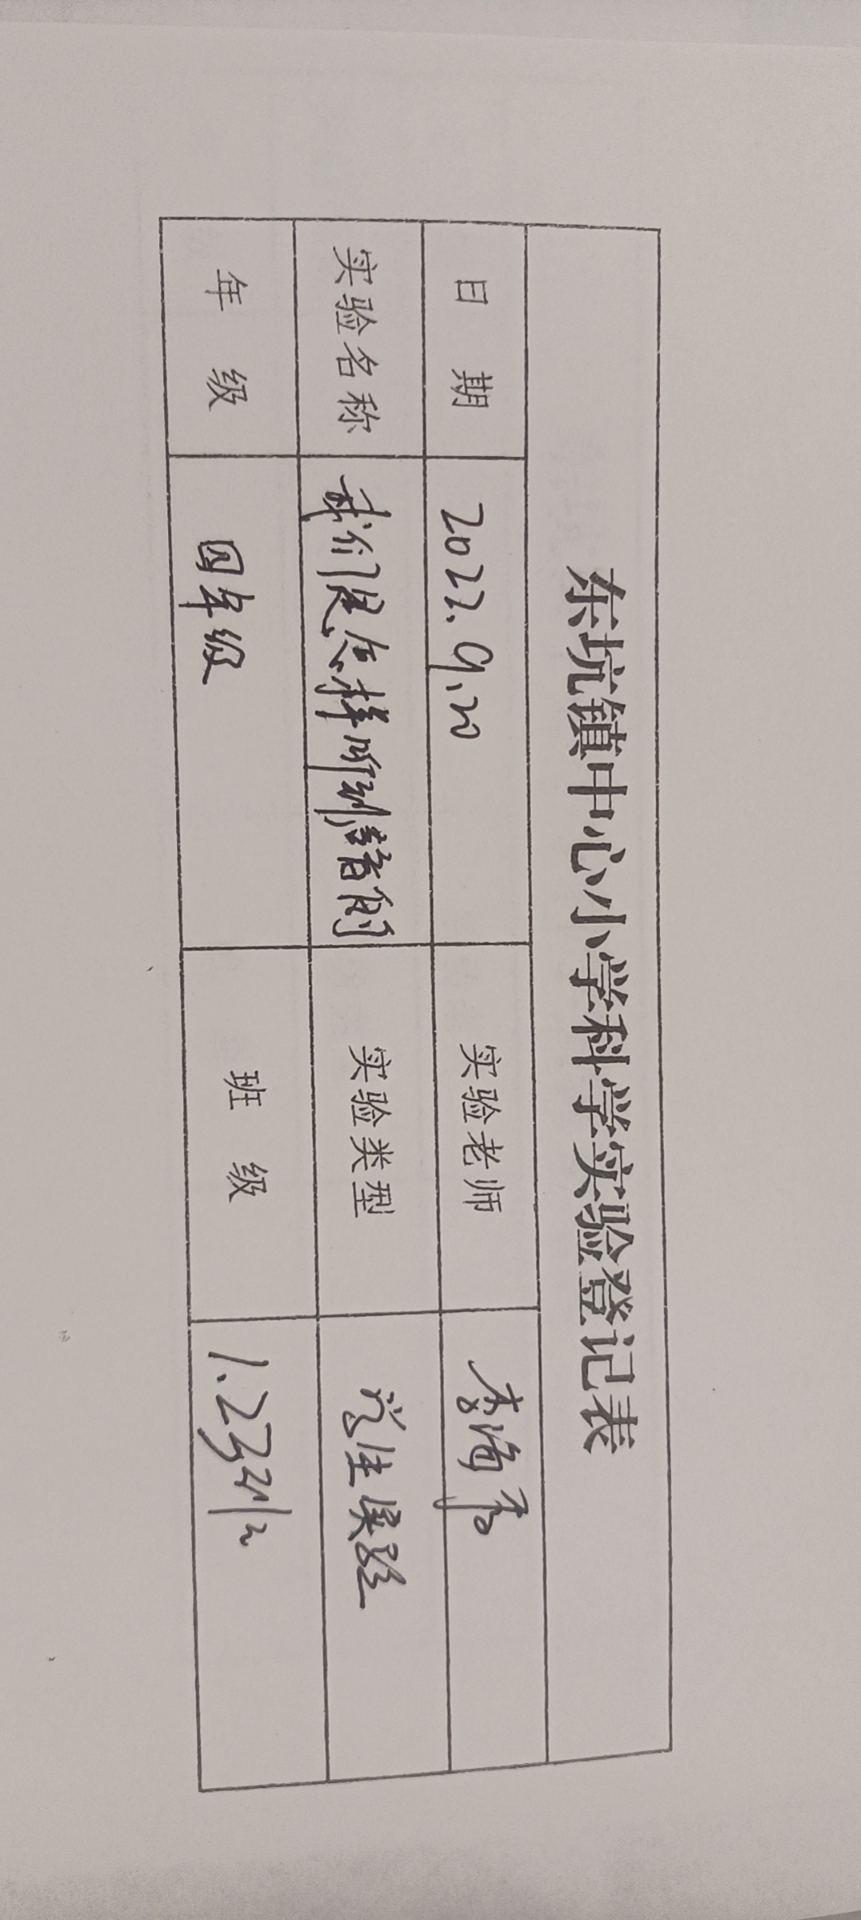 东坑镇中心小学科学实验登记表
日 期 2022.9.20 实验老师 李海香
实验名称 我们是怎样听到声音的 实验类型 学生实验
年 级 四年级 班 级 1.2